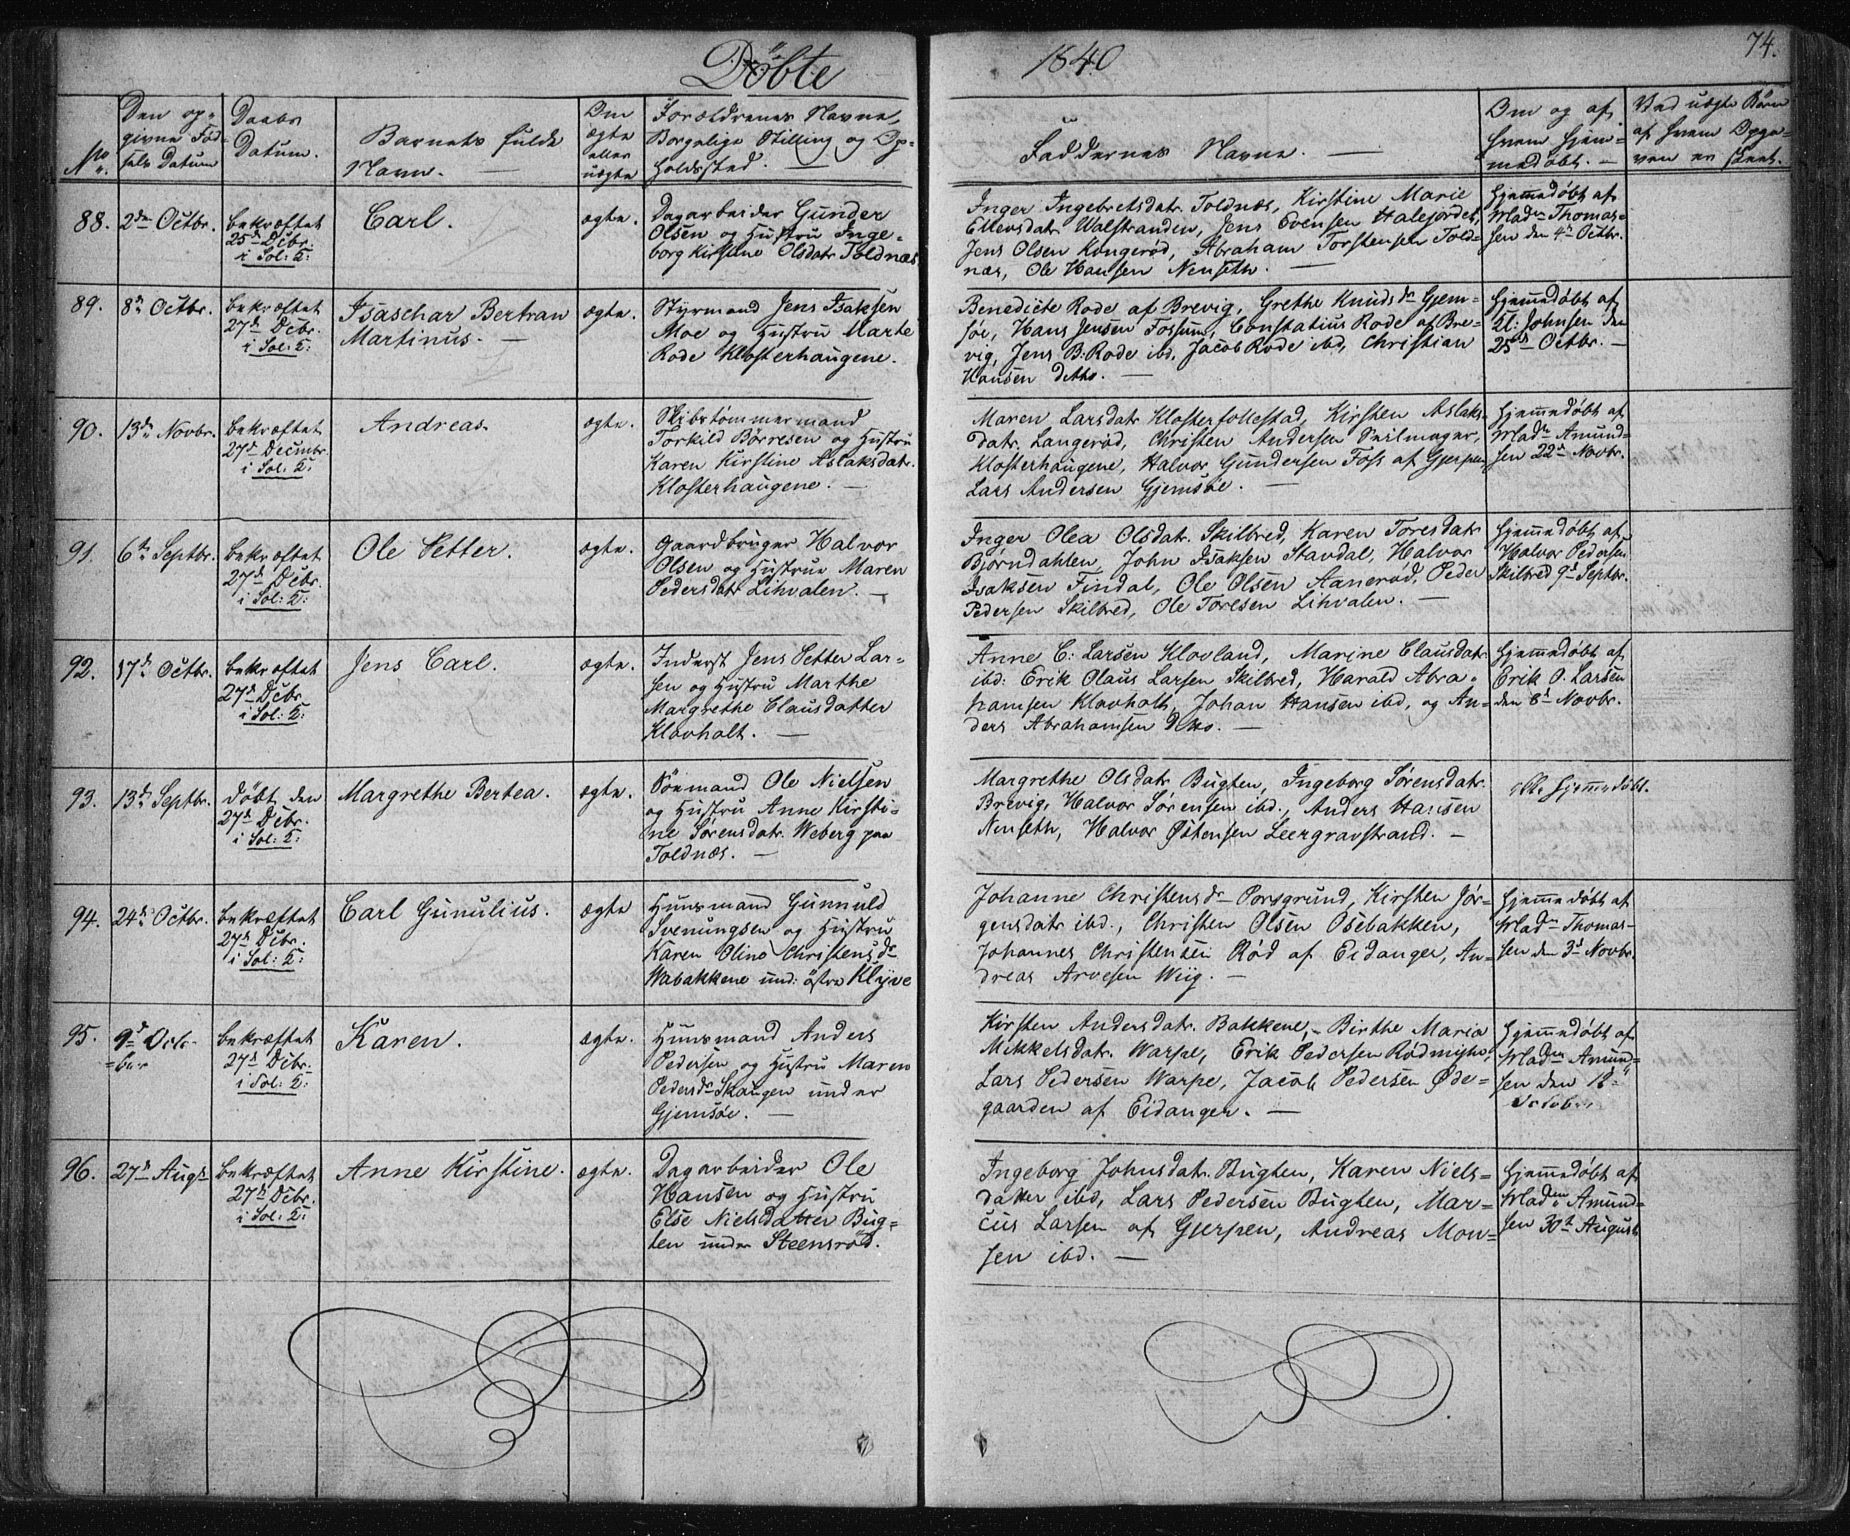 Döbte 1840 74.
No.
Den op-
givne Föd-
sels Datum
Daabs
Datum.
Barnets fulde
Navn. —
Om
ægte
eller
uægte
Forældrenes Navne,
Borgelige Stilling og Op-
holdssted. —
Faddernes Navne. —
Om og af
hvem hjem-
medøbt. —
Ved uægte Børn
af hvem Opga-
ven er skeet.
88. 2den Octbr.
bekræftet
25d Dcbr.
i Sol: K:
Carl.
ægte.
Dagarbeider Gunder
Olsen og Hustru Inge-
borg Kirstine Olsdatr Toldnæs
Inger Ingebretsdatr. Toldnæs, Kirstine Marie
Ellevsdatr Walstranden, Jens Evensen Halejordet,
Jens Olsen Kongerød, Abraham Torstensen Told-
næs, Ole Hansen Nenseth. —
Hjemmedøbt af
Madn Thomas-
sen den 4d Octbr.
89. 8de Octbr.
bekræftet
27d Dcbr.
i Sol: K:
Isaschar Bertran
Martinus. —
ægte.
Styrmand Jens Isaksen
Moe og Hustru Marte
Rode Klosterhaugene.
Benedicte Rode af Brevig, Grethe Knudsdr Gjem-
søe, Hans Jensen Fossum, Constatius Rode af Bre-
vig, Jens B: Rode ibd, Jacob Rode ibd, Christian
Hansen detto. —
Hjemmedøbt af
Kl: Johnsen den
25d Octbr. —
90. 13de Novbr.
bekræftet
27d Decmbr.
i Sol: K:
Andreas.
ægte.
Skibstømmermand
Torkild Börresen og Hustru
Karen Kirstine Aslaksdatr.
Klosterhaugene. —
Maren Larsdatr Klosterfollestad, Kirsten Aslaks-
datr. Langerød, Christen Andersen Seilmager,
Klosterhaugene, Halvor Gundersen Foss af Gjerpen,
Lars Andersen Gjemsøe. —
Hjemmedøbt af
Madn Amund-
sen 22de Novbr.
91. 6te Septbr.
bekræftet
27d Dcbr.
i Sol: K:
Ole Petter.
ægte.
Gaardbruger Halvor
Olsen og Hustrue Maren
Pedersdatr Lihvalen. —
Inger Olea Olsdatr. Skilbred, Karen Toresdatr
Bjørndahlen, John Isaksen Stavdal, Halvor
Isaksen Findal, Ole Olsen Aanerød, Peder
Pedersen Skilbred, Ole Toresen Lihvalen. —
Hjemmedøbt af
Halvor Pedersen
Skilbred 9d Septbr.
92. 17de Octbr.
bekræftet
27d Dcbr.
i Sol: K:
Jens Carl.
ægte.
Inderst Jens Petter Lar-
sen og Hustru Marthe
Margrethe Clausdatter
Klovholt. —
Anne C: Larsen Klovland, Marine Clausdatr
ibd: Erik Olaus Larsen Skilbred, Harald Abra-
hamsen Klovholt, Johan Hansen ibd, og An-
ders Abrahamsen detto. —
Hjemmedøbt af
Erik O. Larsen
den 8d Novbr.
93. 13de Septbr.
døbt den
27d Dcbr.
i Sol: K:
Margrethe Bertea.
ægte.
Sömand Ole Nielsen
og Hustru Anne Kirsti-
ne Sørensdatr. Weberg paa
Toldnæs. —
Margrethe Olsdatr Bugten, Ingeborg Sørensdatr.
Brevig, Halvor Sørensen ibd., Anders Hansen
Nenseth, Halvor Østensen Leergravstrand. —
ikke hjemmedøbt.
94. 24de Octbr.
bekræftet
27d Dcbr.
i Sol: K:
Carl Gunulius.
ægte
Huusmand Gunnuld
Svenungsen og Hustru
Karen Oline Christensdr
Wabakkene und: østre Klyve
Johanne Christensdr Porsgrund, Kirsten Jør-
gensdatr ibd., Christen Olsen Osebakken,
Johannes Christensen Rød af Eidanger, An-
dreas Arvesen Wiig. —
Hjemmedøbt af
Madn Thomas-
sen den 3d Novbr.
95. 9d Octo-
=ber
bekræftet
27d Dcbr.
i Sol: K:
Karen.
ægte.
Huusmand Anders
Pedersen og Hustru Maren
Pedersdr Skaugen under
Gjemsøe. —
Kirsten Andersdatr. Bakkene, Birthe Maria
Mikkelsdatr. Warpe, Erik Pedersen Rødmyhr,
Lars Pedersen Warpe, Jacob Pedersen Øde-
gaarden af Eidanger. —
Hjemmedøbt af
Maden Amund-
sen den 12
October
96. 27de Augst
bekræftet
27d Dcbr.
i Sol: K:
Anne Kirstine.
ægte.
Dagarbeider Ole
Hansen og Hustru
Else Nielsdatter Bug-
ten under Steensrød.
Ingeborg Johnsdatr. Bugten, Karen Niels-
datter ibd, Lars Pedersen Bugten, Mar-
cus Larsen af Gjerpen, Andreas Mon-
sen ibd. —
Hjemmedøbt af
Maden Amund-
sen 30te August